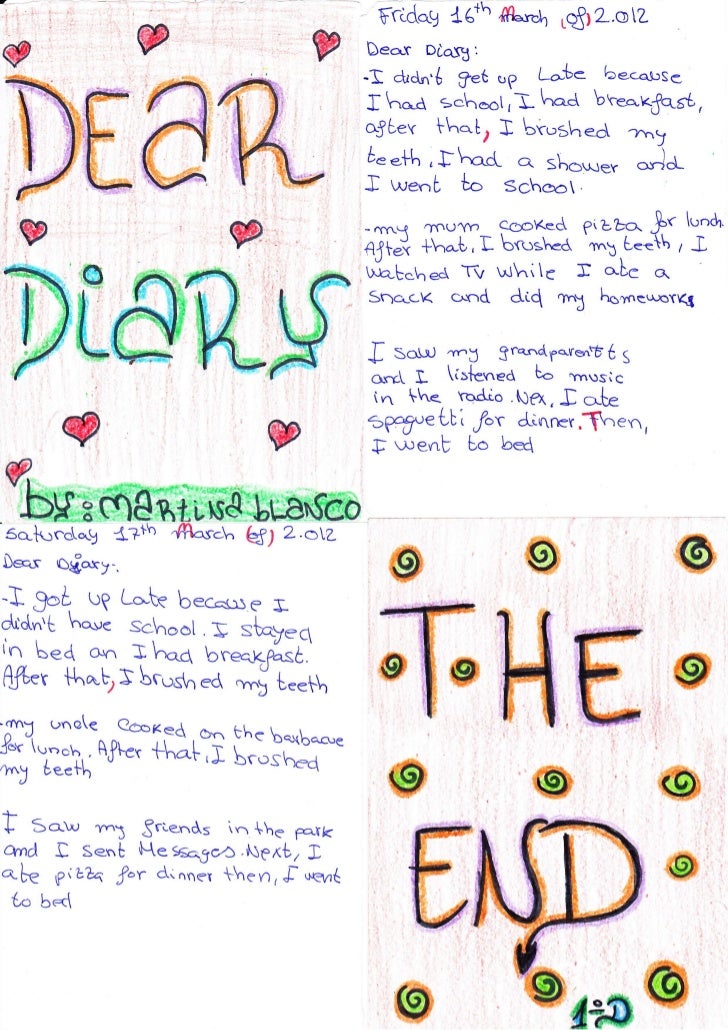 DEAR
DiARy
by: MARtiNa bLANCO
Friday 16th March (of) 2.012
Dear Diary:
-I didn't get up Late because
I had school, I had breakfast,
after that, I brushed my
teeth, I had a shower and
I went to school.
-my mum cooked pizza for lunch.
After that, I brushed my teeth, I
watched TV while I ate a
snack and did my homework
I saw my grandparent's
and I listened to music
in the radio. Nex, I ate
spaguetti for dinner. Then,
I went to bed
Saturday 17th March (of) 2.012
Dear Diary:
-I got up Late because I
didn't have school. I stayed
in bed an I had breakfast.
After that, I brushed my teeth
-my uncle cooked on the barbacue
for lunch. After that, I brushed
my teeth
I saw my friends in the park
and I sent Messages. Next, I
ate pizza for dinner then, I went
to bed
THE
END
1ºD